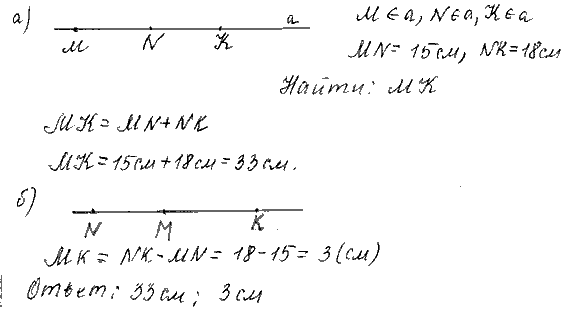 а)
M N K a
M ∈ a, N ∈ a, K ∈ a
MN = 15 см, NK = 18 см
Найти: MK
MK = MN + NK
MK = 15 см + 18 см = 33 см.
б)
N M K
MK = NK - MN = 18 - 15 = 3 (см)
Ответ: 33 см; 3 см